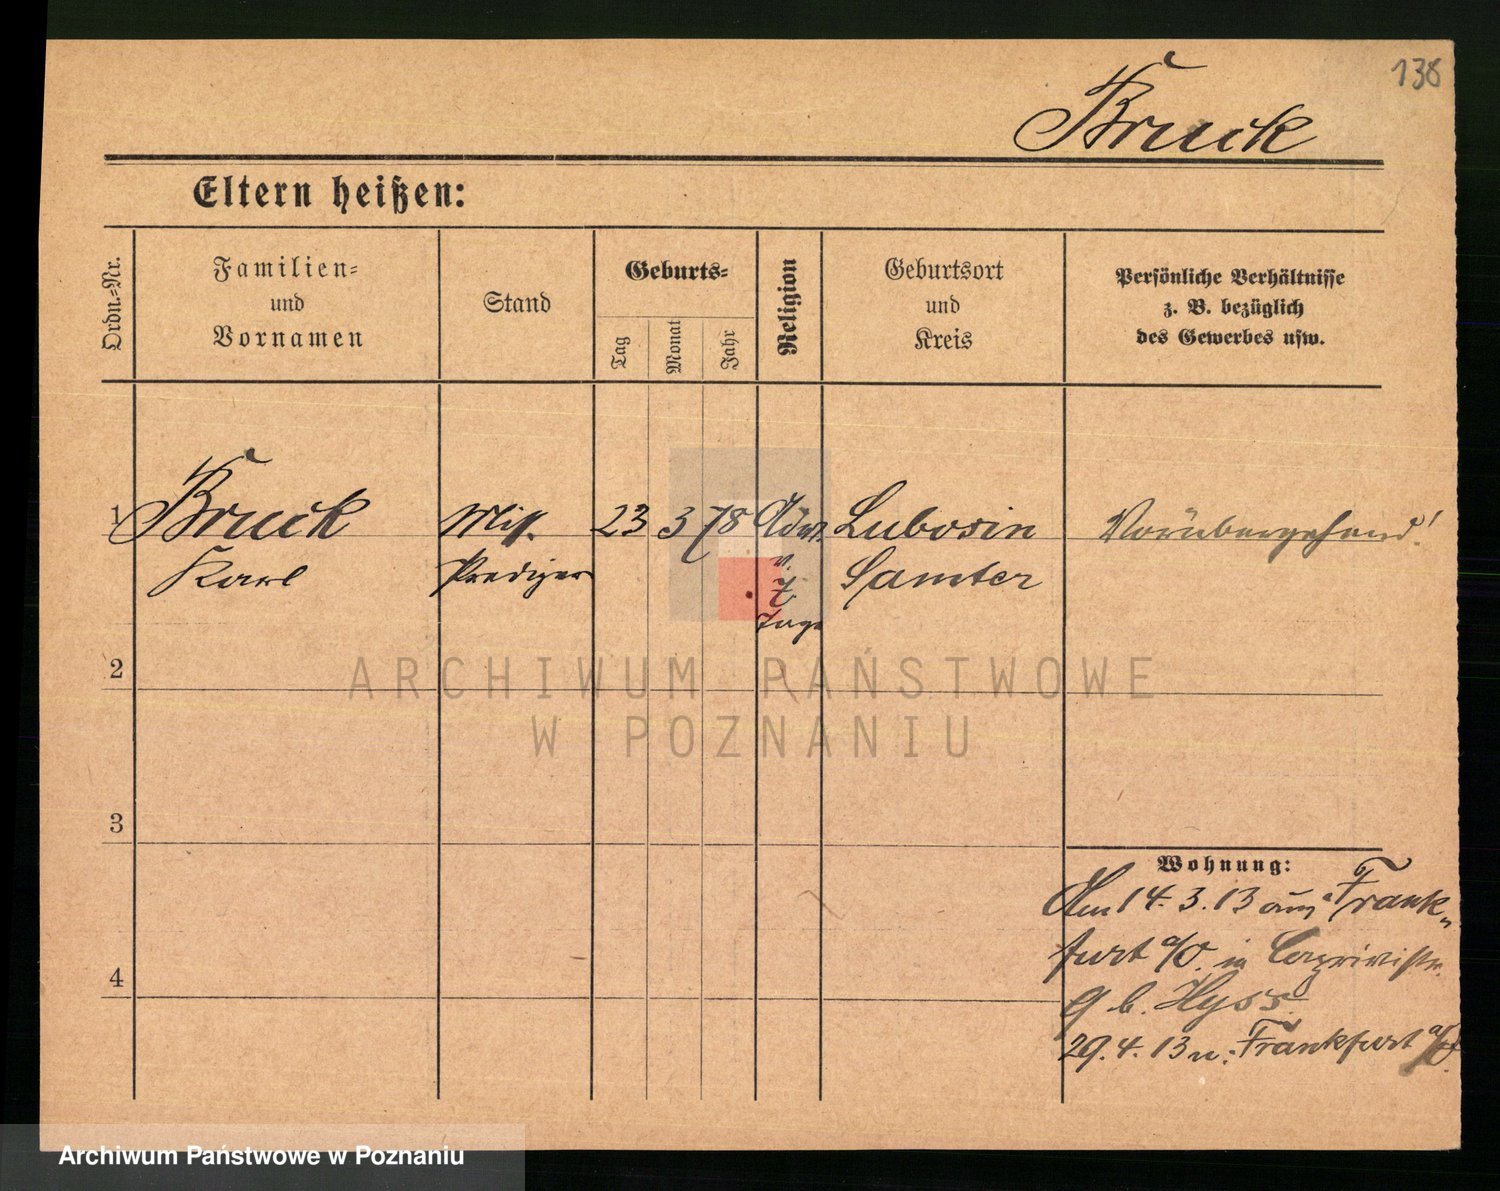 138
Bruck
Eltern heißen:
Ordn.=Nr.
Familien=
und
Vornamen
Stand
Geburts=
Tag
Monat
Jahr
Religion
Geburtsort
und
Kreis
Persönliche Verhältnisse
z. B. bezüglich
des Gewerbes usw.
1 Bruck Miss. 23 3 78 Adv. Lubosin Vorübergehend!
Karl Prediger v. Samter
7
Tage
2
ARCHIWUM PAŃSTWOWE
W POZNANIU
3
Wohnung:
Am 14. 3. 13 aus Frank-
furt a/O. in Caprivistr.
9 b. Hyss
29. 4. 13 n. Frankfurt a/O.
4
Archiwum Państwowe w Poznaniu